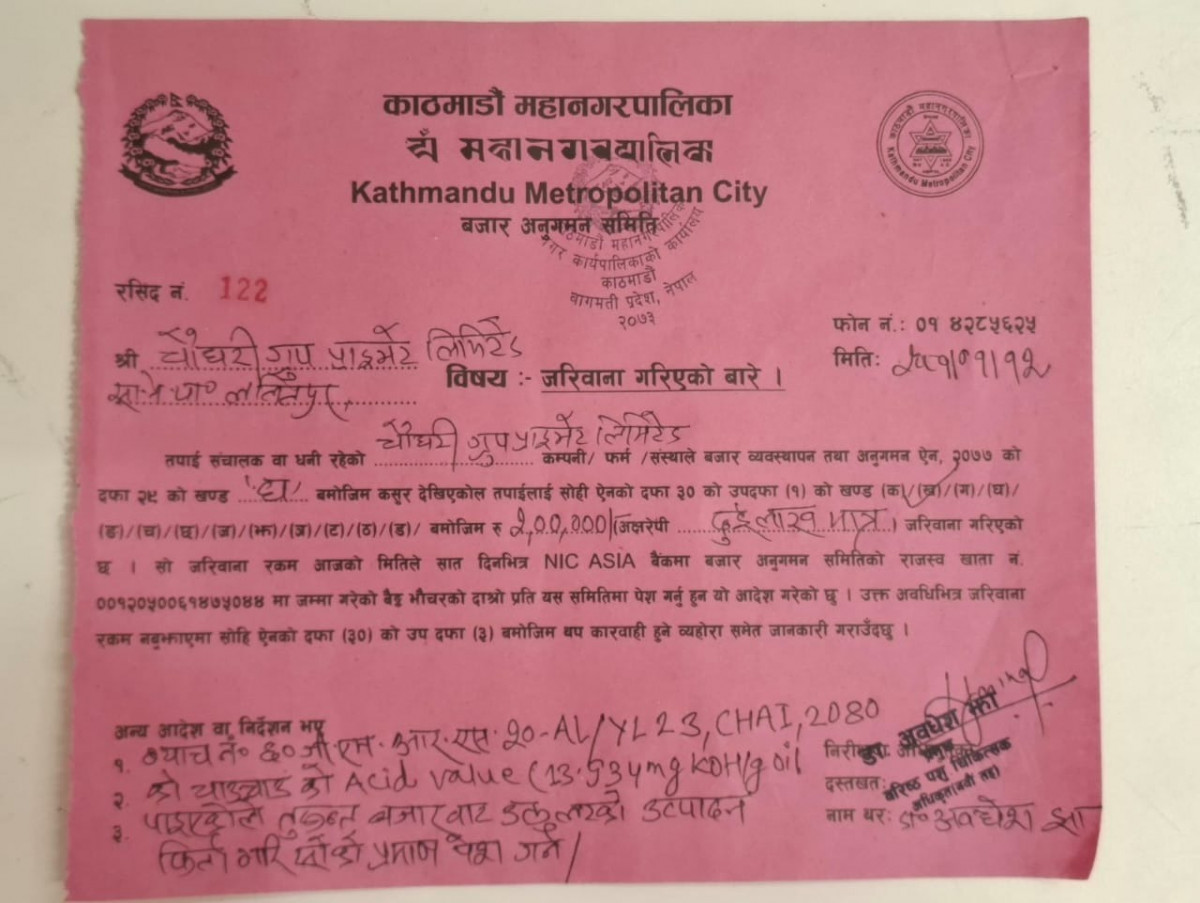 काठमाडौं महानगरपालिका
Kathmandu Metropolitan City
बजार अनुगमन समिति
काठमाडौं महानगरपालिका
नगर कार्यपालिकाको कार्यालय
काठमाडौं
बागमती प्रदेश, नेपाल
२०७३
काठमाडौं महानगरपालिका
Kathmandu Metropolitan City
रसिद नं. 122
फोन नं.: ०१ ४२८५६२५
श्री चौधरी ग्रुप प्राइभेट लिमिटेड
मितिः
ललितपुर
विषय :- जरिवाना गरिएको बारे ।
चौधरी ग्रुप प्राइभेट लिमिटेड
तपाई संचालक वा धनी रहेको कम्पनी/ फर्म /संस्थाले बजार व्यवस्थापन तथा अनुगमन ऐन, २०७७ को
दफा २९ को खण्ड बमोजिम कसुर देखिएकोल तपाईलाई सोही ऐनको दफा ३० को उपदफा (१) को खण्ड (क)/(ख)/(ग)/(घ)/
(ङ)/(च)/(छ)/(ज)/(झ)/(ञ)/(ट)/(ठ)/(ड)/ बमोजिम रु २,००,०००/(अक्षरेपी दुई लाख मात्र) जरिवाना गरिएको
छ । सो जरिवाना रकम आजको मितिले सात दिनभित्र NIC ASIA बैंकमा बजार अनुगमन समितिको राजस्व खाता नं.
००१२०५००६१४७५०४४ मा जम्मा गरेको बैङ्क भौचरको दाश्रो प्रति यस समितिमा पेश गर्नु हुन यो आदेश गरेको छु । उक्त अवधिभित्र जरिवाना
रकम नबुझाएमा सोहि ऐनको दफा (३०) को उप दफा (३) बमोजिम थप कारवाही हुने व्यहोरा समेत जानकारी गराउँदछु ।
अन्य आदेश वा निर्देशन भए
१. ब्याच नं० ६० जी.एम. आर.एस. २०-AL/YL23, CHAI, 2080
२. को चाउचाउ को Acid value (13.534mg KOH/g oil
३. पाइएकोले तुरुन्त बजारबाट उत्पादन
फिर्ता गरि सोको प्रमाण पेश गर्ने।
डा. अवधेश झा
प्रमुख
वरिष्ठ पशु चिकित्सक
दस्तखतः
नाम थरः डा० अवधेश झा